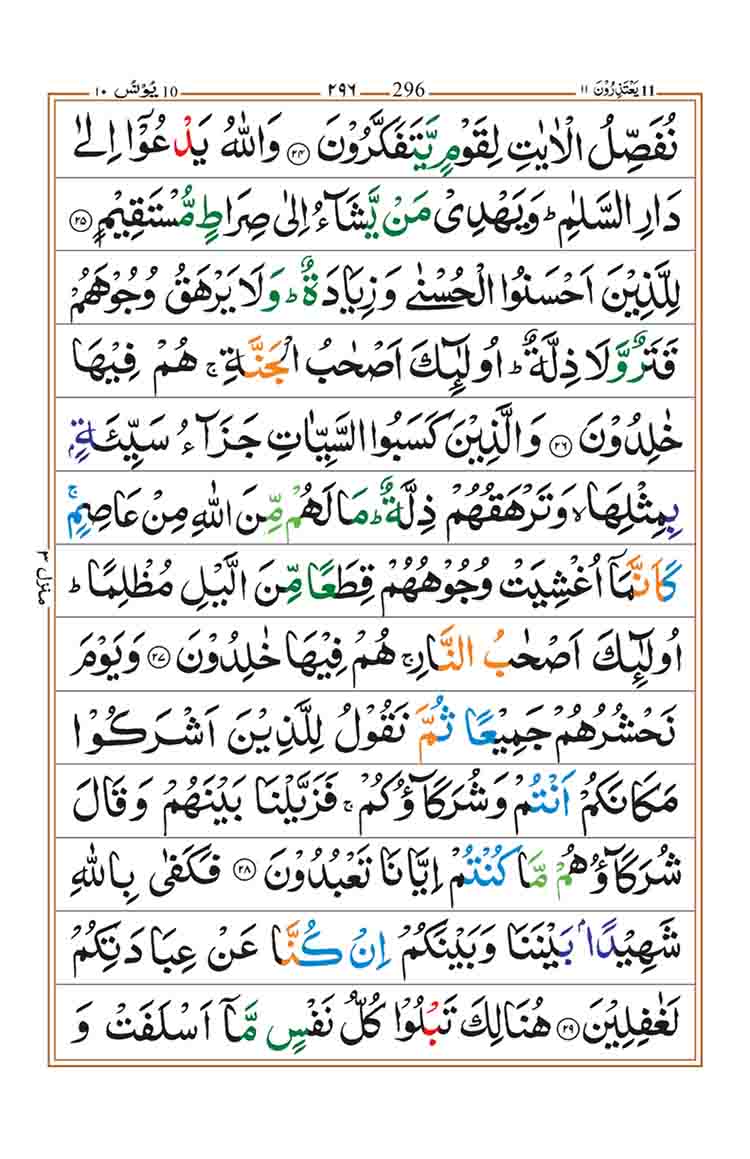 يَعْتَذِرُوْنَ 11 ١١ 296 ٢٩٦ يُوْنُس 10 ١٠
نُفَصِّلُ الْاٰيٰتِ لِقَوْمٍ يَّتَفَكَّرُوْنَ ۝٢٤ وَاللّٰهُ يَدْعُوْٓا اِلٰى
دَارِ السَّلٰمِ ؕ وَيَهْدِىْ مَنْ يَّشَآءُ اِلٰى صِرَاطٍ مُّسْتَقِيْمٍ ۝٢٥
لِلَّذِيْنَ اَحْسَنُوا الْحُسْنٰى وَزِيَادَةٌ ؕ وَلَا يَرْهَقُ وُجُوْهَهُمْ
قَتَرٌ وَّلَا ذِلَّةٌ ؕ اُولٰٓئِكَ اَصْحٰبُ الْجَنَّةِ ۚ هُمْ فِيْهَا
خٰلِدُوْنَ ۝٢٦ وَالَّذِيْنَ كَسَبُوا السَّيِّاٰتِ جَزَآءُ سَيِّئَةٍۭ
بِمِثْلِهَا ۙ وَتَرْهَقُهُمْ ذِلَّةٌ ؕ مَا لَهُمْ مِّنَ اللّٰهِ مِنْ عَاصِمٍ ۚ
كَاَنَّمَاۤ اُغْشِيَتْ وُجُوْهُهُمْ قِطَعًا مِّنَ الَّيْلِ مُظْلِمًا ؕ
اُولٰٓئِكَ اَصْحٰبُ النَّارِ ۚ هُمْ فِيْهَا خٰلِدُوْنَ ۝٢٧ وَيَوْمَ
منزل ٣
نَحْشُرُهُمْ جَمِيْعًا ثُمَّ نَقُوْلُ لِلَّذِيْنَ اَشْرَكُوْا
مَكَانَكُمْ اَنْتُمْ وَشُرَكَآؤُكُمْ ۚ فَزَيَّلْنَا بَيْنَهُمْ وَقَالَ
شُرَكَآؤُهُمْ مَّا كُنْتُمْ اِيَّانَا تَعْبُدُوْنَ ۝٢٨ فَكَفٰى بِاللّٰهِ
شَهِيْدًاۢ بَيْنَنَا وَبَيْنَكُمْ اِنْ كُنَّا عَنْ عِبَادَتِكُمْ
لَغٰفِلِيْنَ ۝٢٩ هُنَالِكَ تَبْلُوْا كُلُّ نَفْسٍ مَّاۤ اَسْلَفَتْ وَ